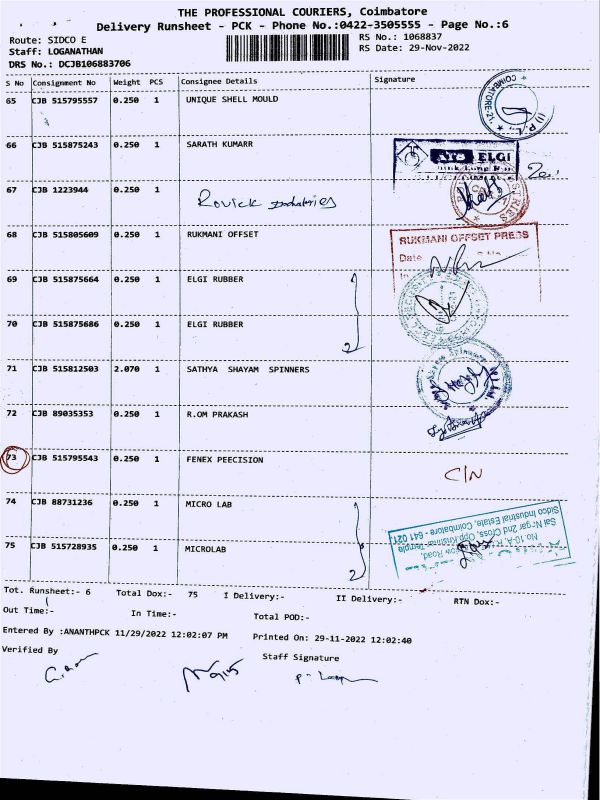 THE PROFESSIONAL COURIERS, Coimbatore
Delivery Runsheet - PCK - Phone No.:0422-3505555 - Page No.:6
Route: SIDCO E
RS No.: 1068837
Staff: LOGANATHAN
RS Date: 29-Nov-2022
DRS No.: DCJB106883706
S No Consignment No Weight PCS Consignee Details Signature
65 CJB 515795557 0.250 1 UNIQUE SHELL MOULD
66 CJB 515875243 0.250 1 SARATH KUMARR
ELGI
67 CJB 1223944 0.250 1 Rovick Industries
68 CJB 515805609 0.250 1 RUKMANI OFFSET
RUKMANI OFFSET PRESS
Date
69 CJB 515875664 0.250 1 ELGI RUBBER
70 CJB 515875686 0.250 1 ELGI RUBBER
2
71 CJB 515812503 2.070 1 SATHYA SHAYAM SPINNERS
72 CJB 89035353 0.250 1 R.OM PRAKASH
73 CJB 515795543 0.250 1 FENEX PEECISION C/N
74 CJB 88731236 0.250 1 MICRO LAB
75 CJB 515728935 0.250 1 MICROLAB
2
Opp.Krishna Temple
Sai Nagar 2nd Cross,
Sidco Industrial Estate, Coimbatore - 641 021.
Tot. Runsheet:- 6 Total Dox:- 75 I Delivery:- II Delivery:- RTN Dox:-
Out Time:- In Time:- Total POD:-
Entered By :ANANTHPCK 11/29/2022 12:02:07 PM Printed On: 29-11-2022 12:02:40
Verified By Staff Signature